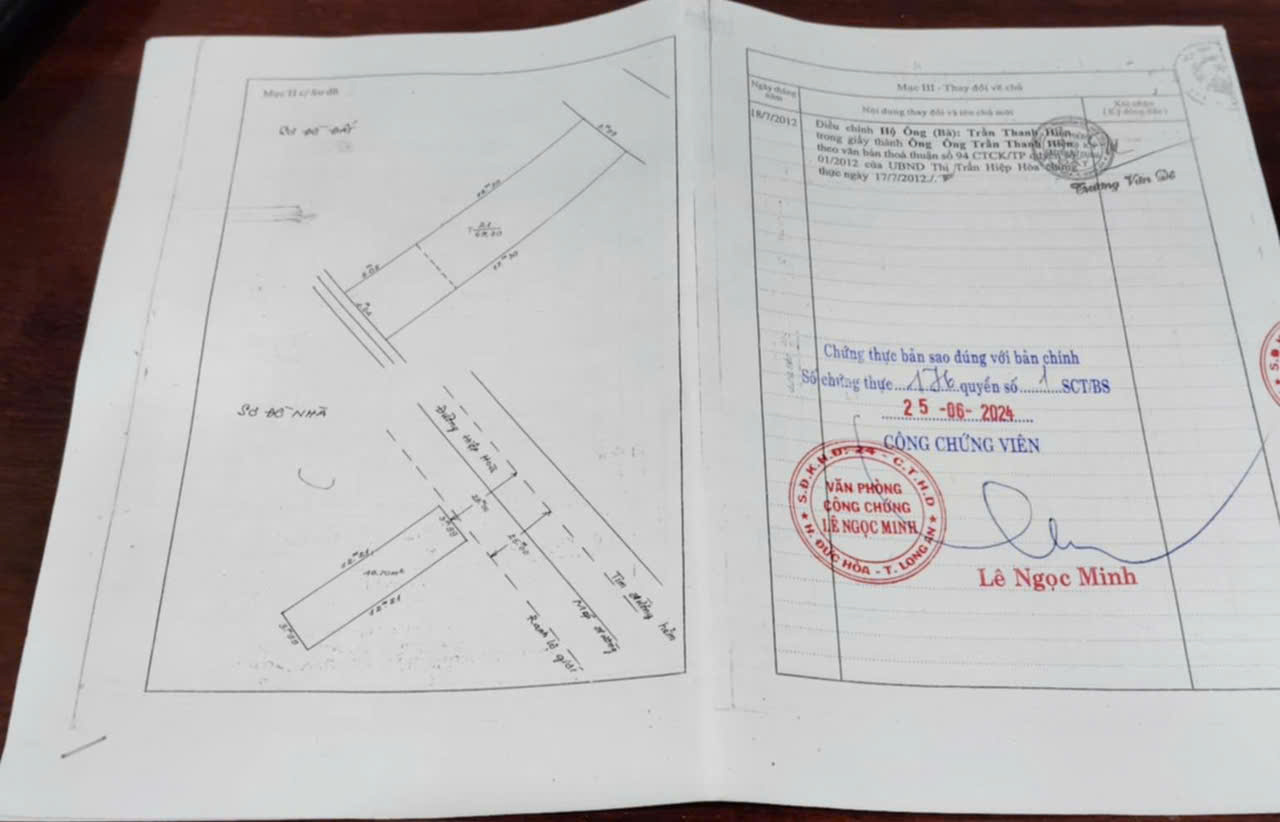 Mục II c/ Sơ đồ
SƠ ĐỒ ĐẤT
SƠ ĐỒ NHÀ
Đường Hiệp Hoà
Tim đường hẻm
Mép đường
Ranh lộ giới
Mục III - Thay đổi về chủ
Ngày tháng năm
Nội dung thay đổi và tên chủ mới
Xác nhận
(Ký đóng dấu)
18/7/2012
Điều chỉnh Hộ Ông (Bà): Trần Thanh Hiền
trong giấy thành Ông Ông Trần Thanh Hiền
theo văn bản thoả thuận số 94 CTCK/TP quyển số
01/2012 của UBND Thị Trấn Hiệp Hòa chứng
thực ngày 17/7/2012./.
Trương Văn Đê
Chứng thực bản sao đúng với bản chính
Số chứng thực...176 quyển số...1...SCT/BS
25 -06- 2024
CÔNG CHỨNG VIÊN
S.Đ.K.H.Đ: 24 - C.T.H.D
VĂN PHÒNG
CÔNG CHỨNG
LÊ NGỌC MINH
H. ĐỨC HÒA - T. LONG AN
Lê Ngọc Minh